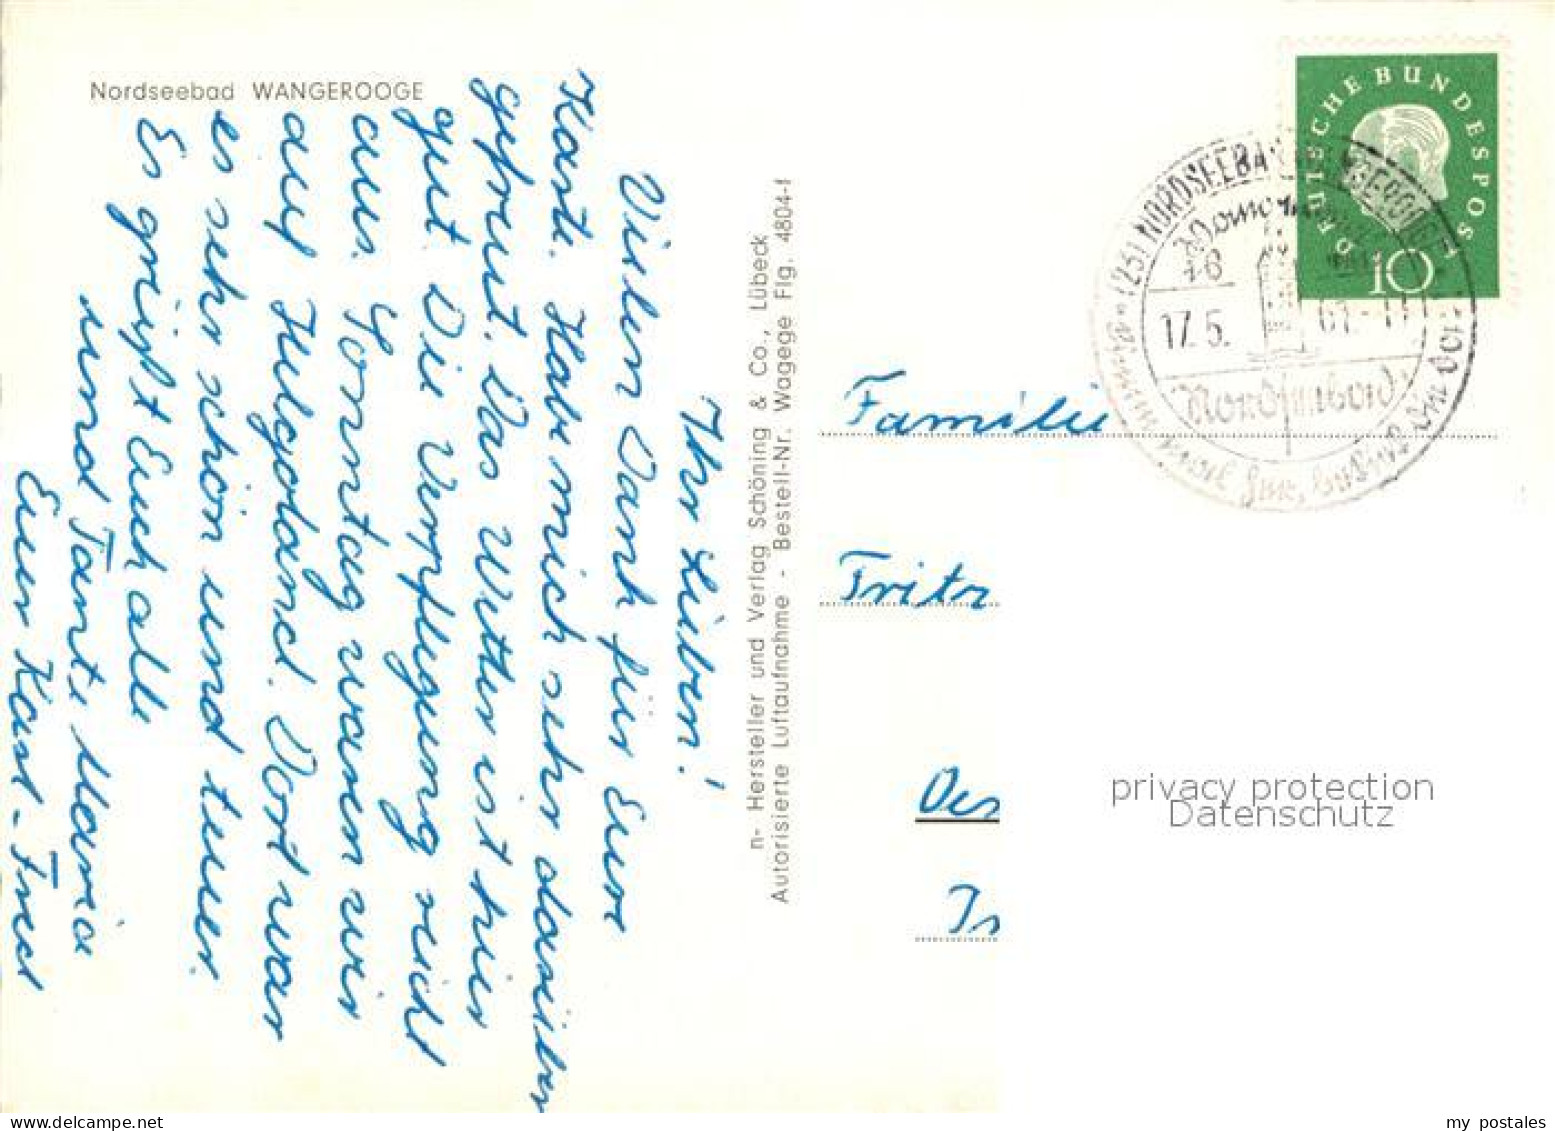 Nordseebad WANGEROOGE
Ihr Lieben!
Vielen Dank für Eure
Karte. Habe mich sehr darüber
gefreut. Das Wetter ist hier
gut. Die Verpflegung reicht
aus. Sonntag waren wir
auf Helgoland. Dort war
es sehr schön und teuer.
Es grüßt Euch alle
und Tante Maria
Euer Karl-Fred
n- Hersteller und Verlag Schöning & Co., Lübeck
Autorisierte Luftaufnahme - Bestell-Nr. Wagege Flg. 4804-1
DEUTSCHE BUNDESPOST
10
(23) NORDSEEBAD WANGEROOGE
17.5. 61-11
Nordseebad
Familie
Fritz
privacy protection
Datenschutz
my postales